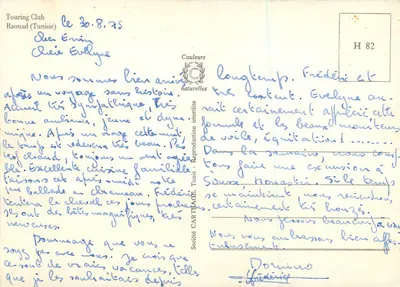 Touring Club
Raouad (Tunisie)
le 30.8.75
Cher Erwin
Chère Evelyne
Nous sommes bien arrivés
après un voyage sans histoire.
Accueil très sympathique, très
bonne ambiance, jeune et dyna-
mique. Après un orage cette nuit
le temps est redevenu très beau. Pas
trop chaud, toujours un vent agré-
able. Excellente cuisine familiale
une ballade en chameau. Frédéric
tentera le cheval ces jours prochains
Ils ont de bêtes magnifiques, très
nerveuses.
Dommage que vous ne
soyez pas avec nous. Je crois que
ce sont de vraies vacances, telles
que je les souhaitais depuis
Couleurs
naturelles
Société CARTHAGE, Tunis - Reproduction interdite
H 82
longtemps. Frédéric est
très content. Evelyne au-
rait certainement apprécié cette
formule et les beaux moniteurs
de voile, équitation!........
Dans la semaine nous comp-
tons faire une excursion à
Sousse, Monastir. Si le temps
se maintient nous reviendrons
certainement très bronzés.
Nous pensons beaucoup à vous
Nous vous embrassons bien affec-
tueusement.
Frédéric